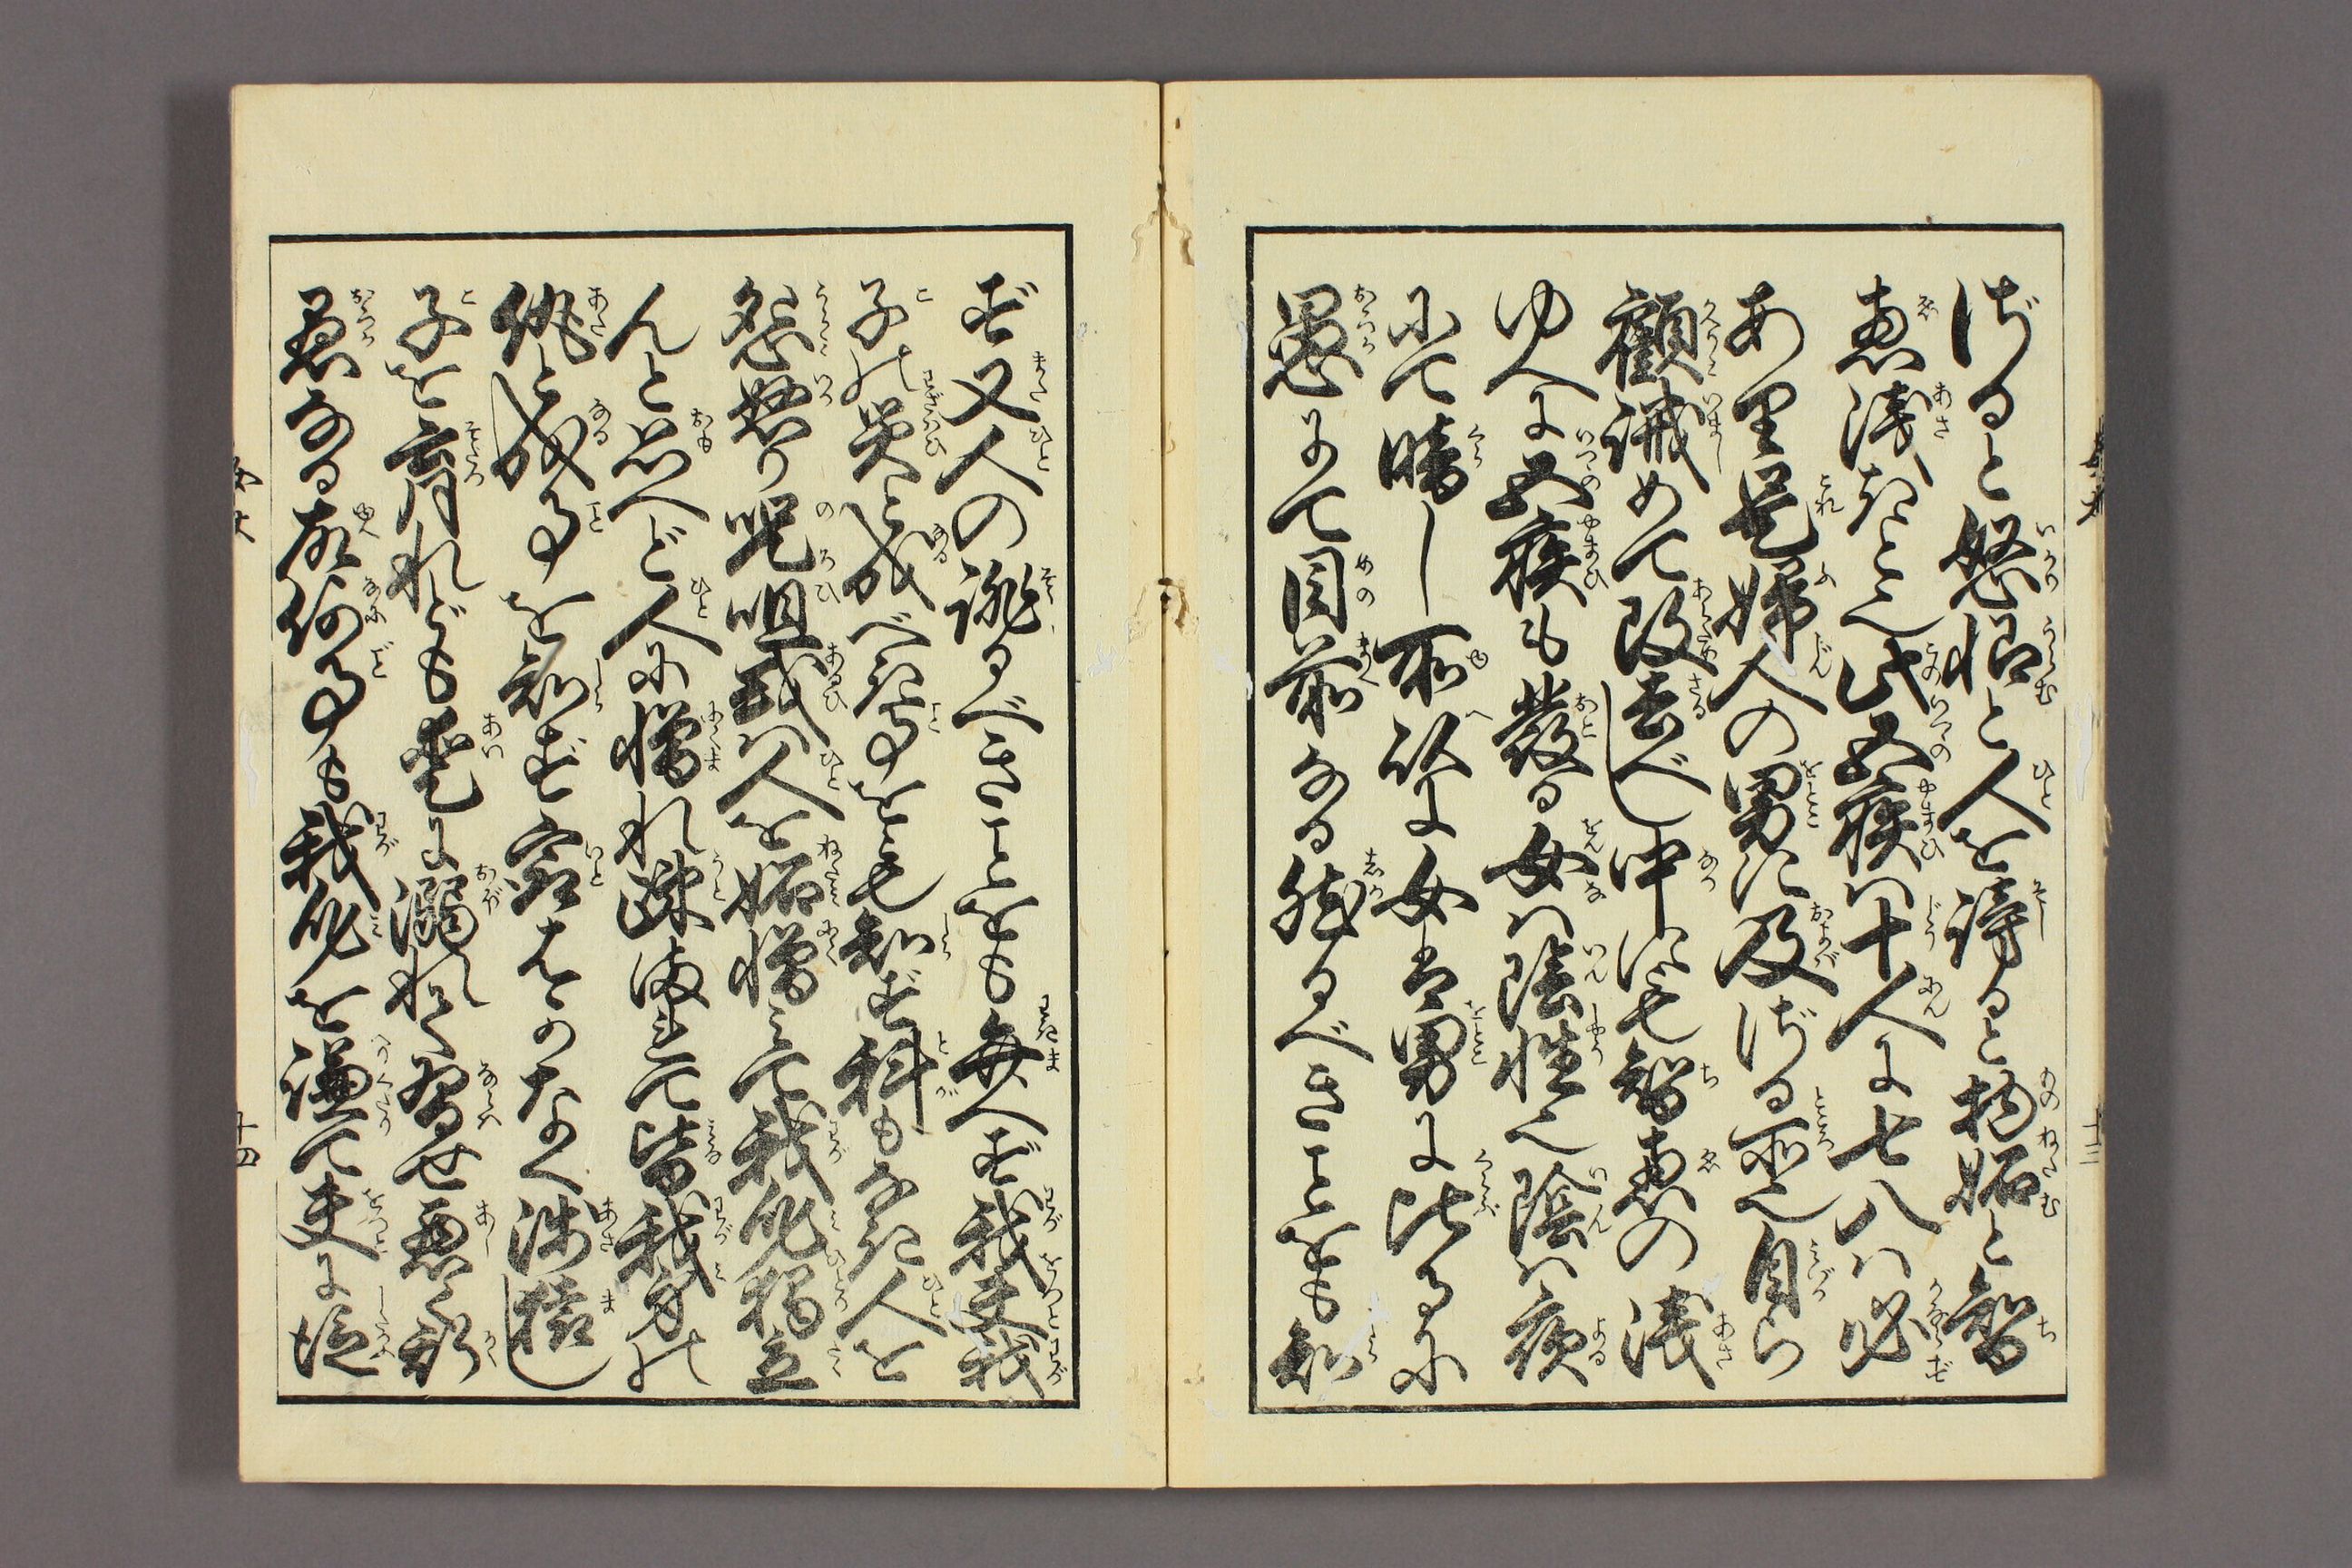 ざると怒恨と人を謗ると物妬と智
恵浅きと也此五疾は十人に七八は必
あり是婦人の男に及ざる所也自ら
顧誡めて改去べし中にも智恵の浅
ゆへに五疾も発る女は陰性也陰は夜
にて暗し所以に女は男に比るに
愚にて目前なる然るべきことをも知
ず又人の誹るべきことをも弁へず我夫我
子の災と成べき事をも知ず科もなき人を
怨怒り呪詛或は人を妬憎みて我身独立
んと思へど人に憎れ疎まれて皆我身の
仇と成事を知ずいとはかなく浅猿し
子を育れども愛に溺れて習せ悪く斯
愚なる故何事も我身を謙て夫に従
十三
十四